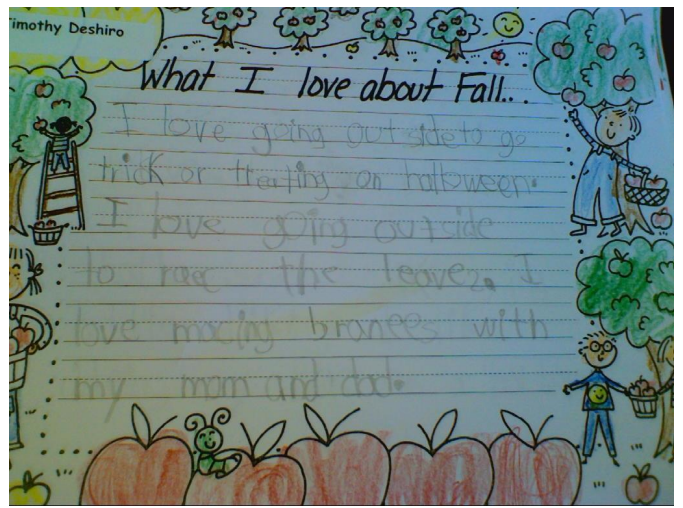 Timothy Deshiro
What I love about Fall...
I love going outside to go
trick or treating on halloween.
I love going outside
to race the leavez. I
love macing branees with
my mom and dad.